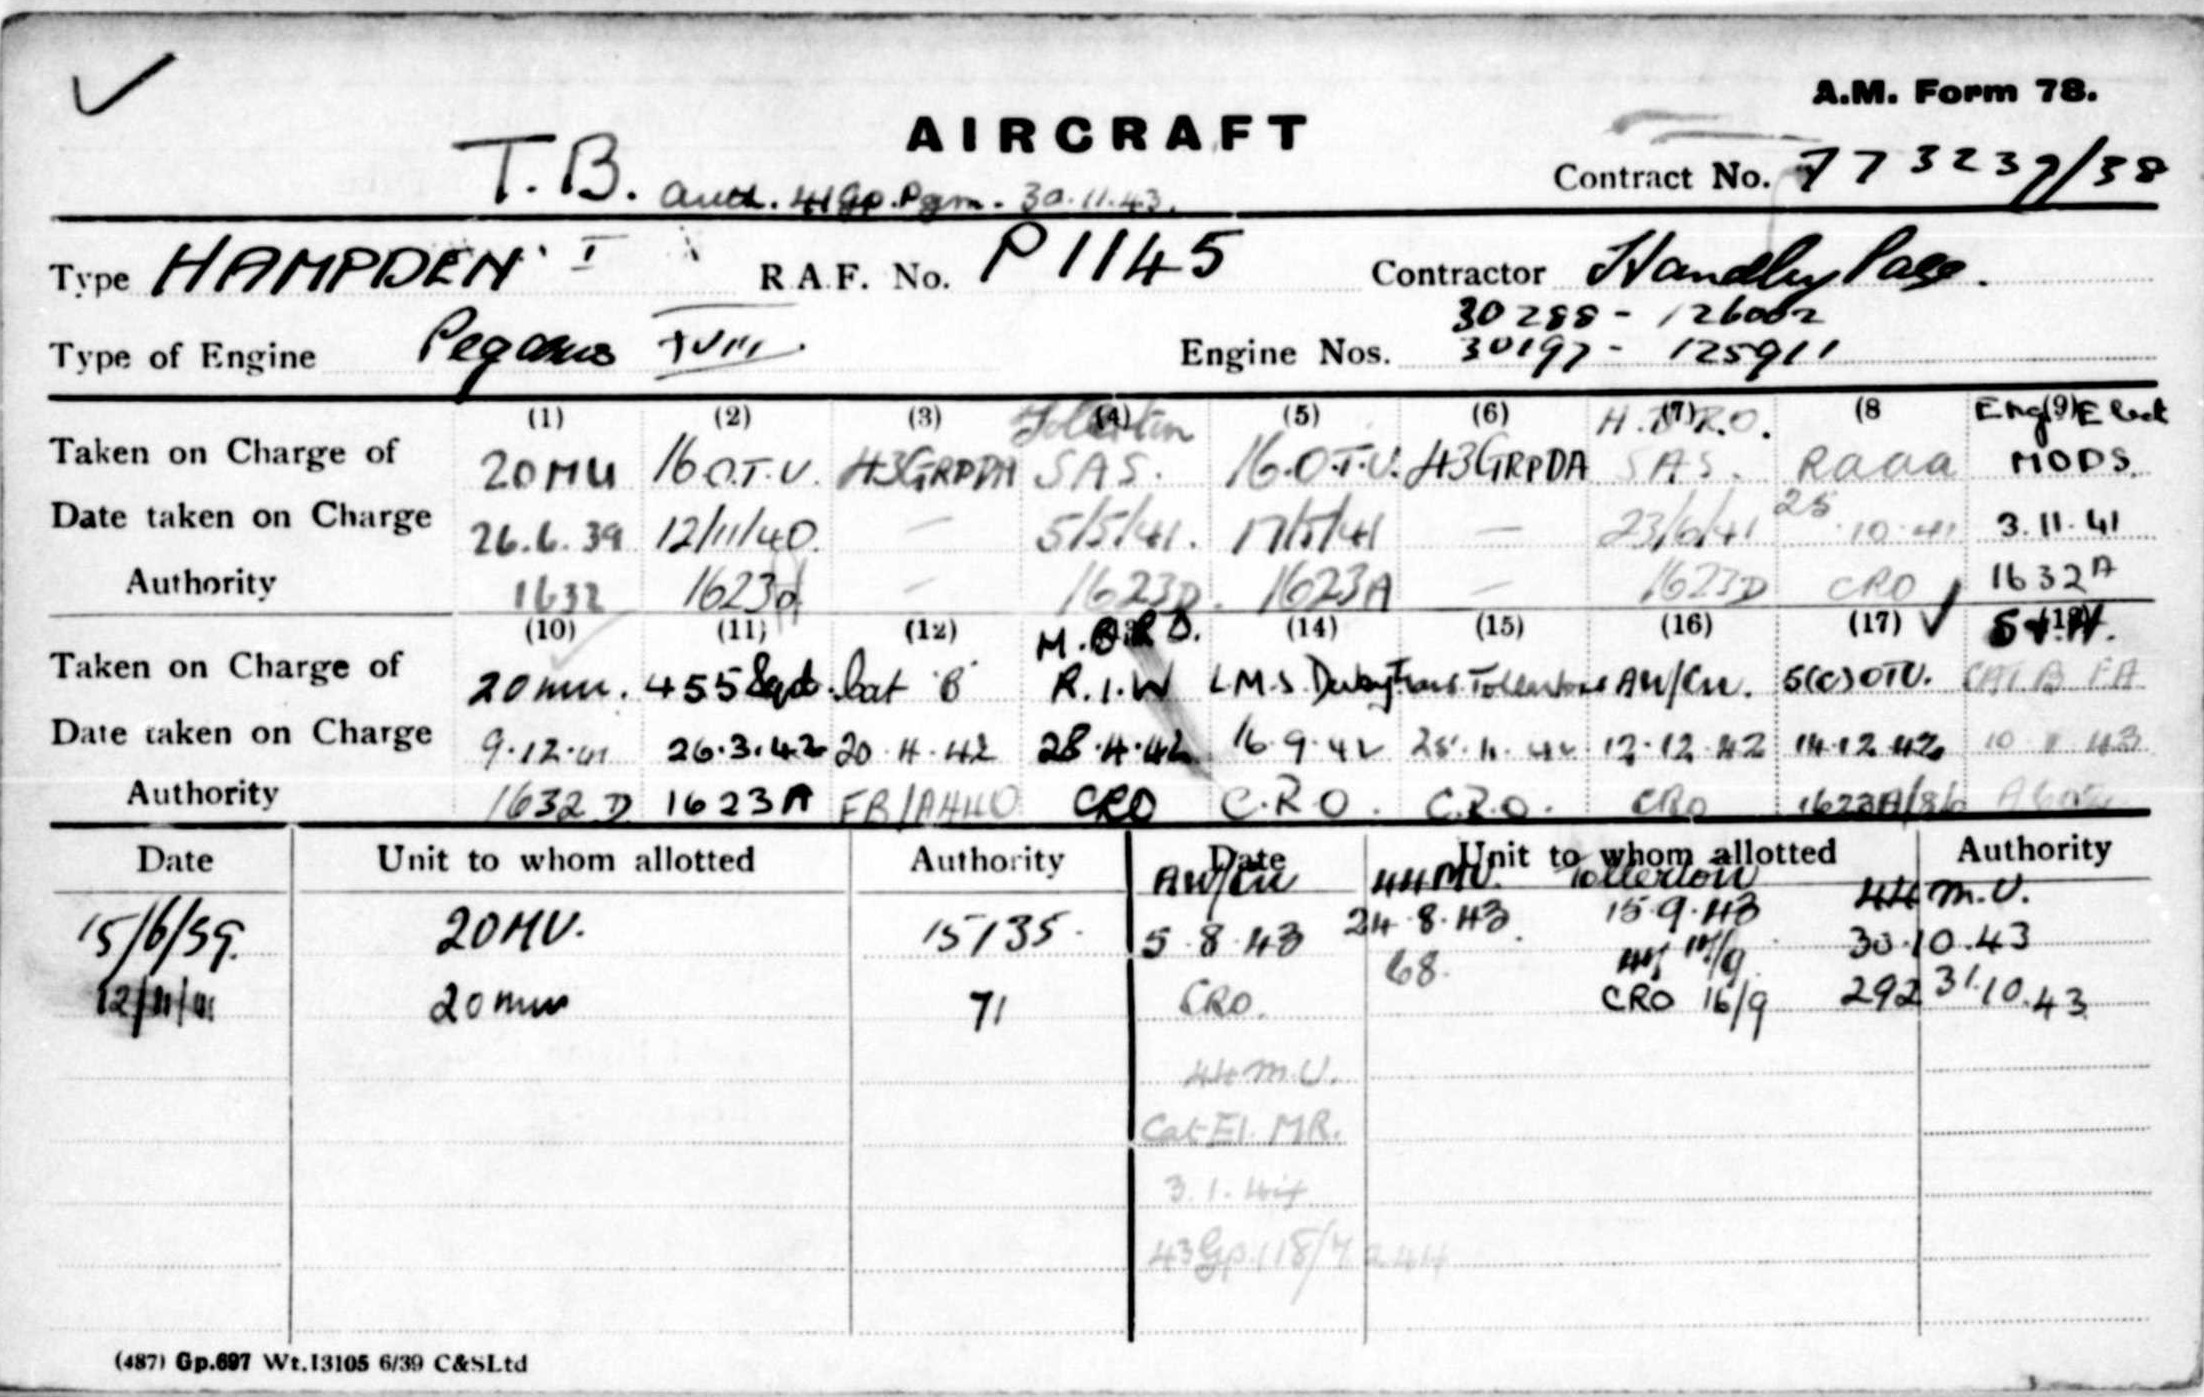 A.M. Form 78.
AIRCRAFT
Contract No. 773237/38
T.B. auth. 41 Gp. Pgm. 30.11.43.
Type HAMPDEN I R.A.F. No. P1145 Contractor Handley Page.
30288 - 126002
Type of Engine Pegasus XVIII Engine Nos. 30197 - 125911
(1) (2) (3) (4) (5) (6) (7) (8 (9)
Tollerton H.B.R.O. Eng Elect
Taken on Charge of 20MU 16 O.T.U. 43GRPDA SAS. 16.O.T.U. 43GRPDA SAS. Raaa MODS.
Date taken on Charge 26.6.39 12/11/40. — 5/5/41. 17/5/41 — 23/6/41 25.10.41 3.11.41
Authority 1632 1623d — 1623D. 1623A — 1623D CRO 1632A
(10) (11) (12) (14) (15) (16) (17)
M.B.R.O.
Taken on Charge of 20mu. 455 Sqd. Cat 'B' R.I.W L.M.S. Derby Trans. Tollerton AW/CN. 5(C)OTU. CAT B FA
Date taken on Charge 9.12.41 26.3.42 20.4.42 28.4.42 16.9.42 25.11.42 12.12.42 14.12.42 10 43
Authority 1632 D 1623A FB/AHHO CRO C.R.O. C.R.O. CRO 1623A/86
Date Unit to whom allotted Authority Date Unit to whom allotted Authority
AW/CN 44MU. Tollerton 44 M.U.
15/6/39. 20MU. 15135. 5.8.43 24.8.43 15.9.43 30.10.43
68.
12/11/41 20mu 71 CRO. CRO 16/9 292 31.10.43
44 M.U.
Cat E1. MR.
3.1.44
43 Gp. 118/7.2.44
(487) Gp.697 Wt.13105 6/39 C&SLtd